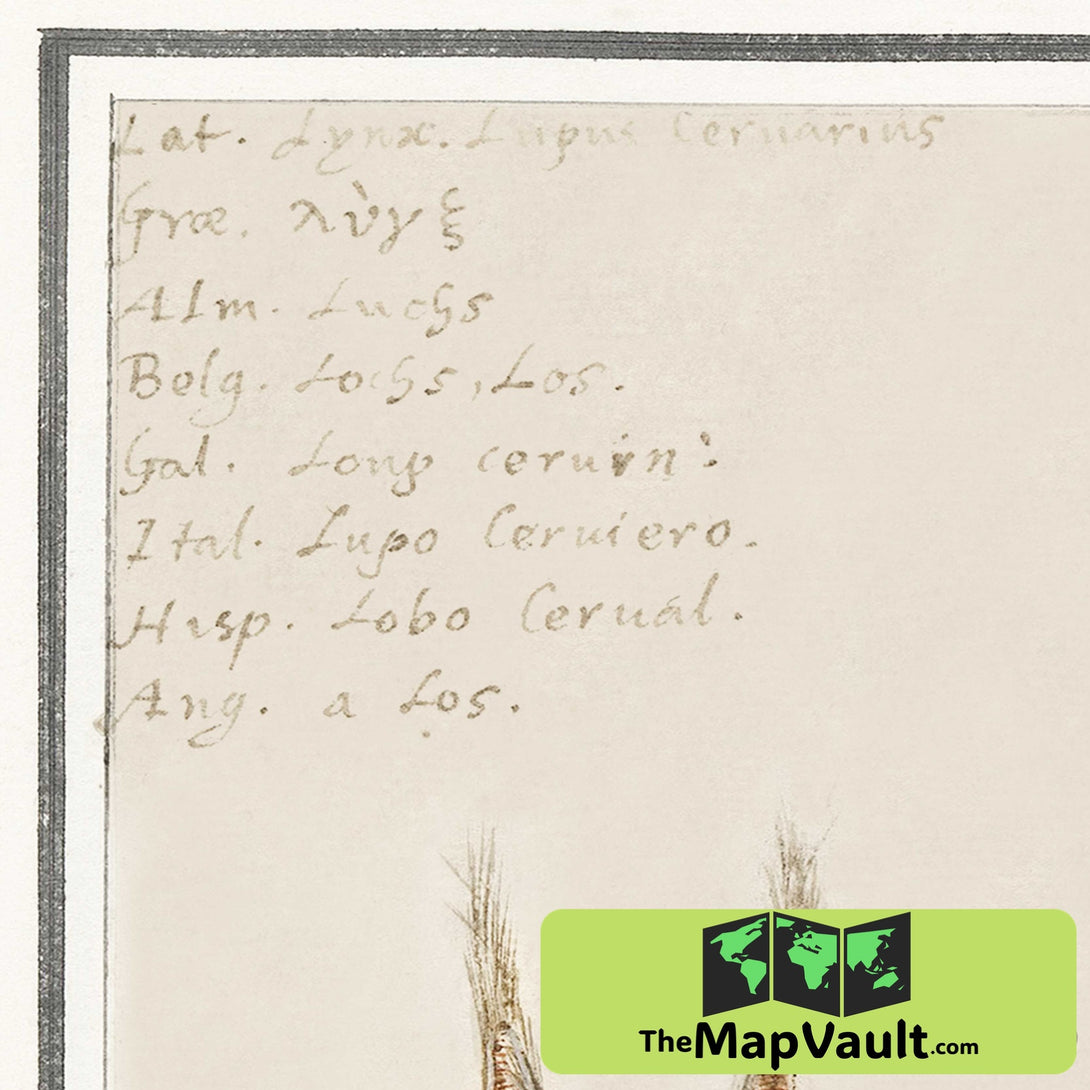 Lat. Lynx. Lupus Ceruarius
Græ. λὺγξ
Alm. Luchs
Belg. Lochs, Los.
Gal. Loup ceruin:
Ital. Lupo Ceruiero.
Hisp. Lobo Ceruál.
Ang. a Los.
TheMapVault.com